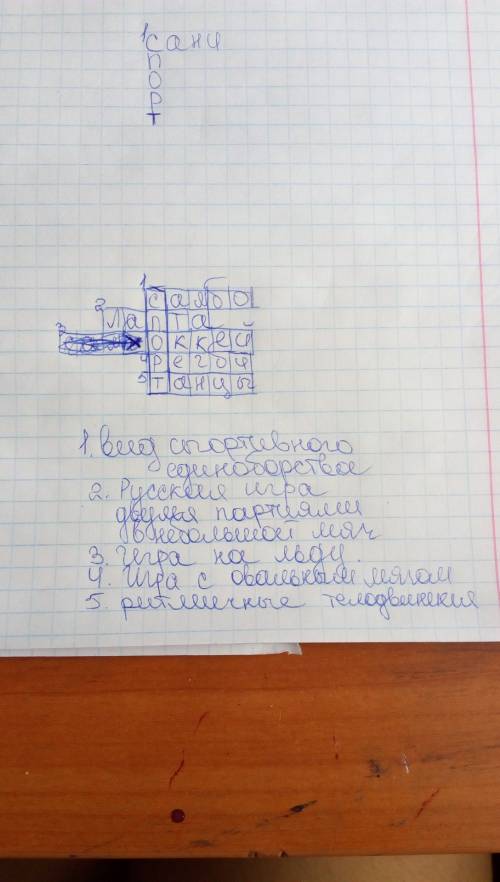 1сани
п
о
р
т
1 самбо
2 лапта
3 оккей
4 регби
5 танцы
1. вид спортивного
единоборства
2. Русская игра
двумя партиями
в небольшой мяч
3. Игра на льду.
4. Игра с овальным мячом
5. ритмичные телодвижения